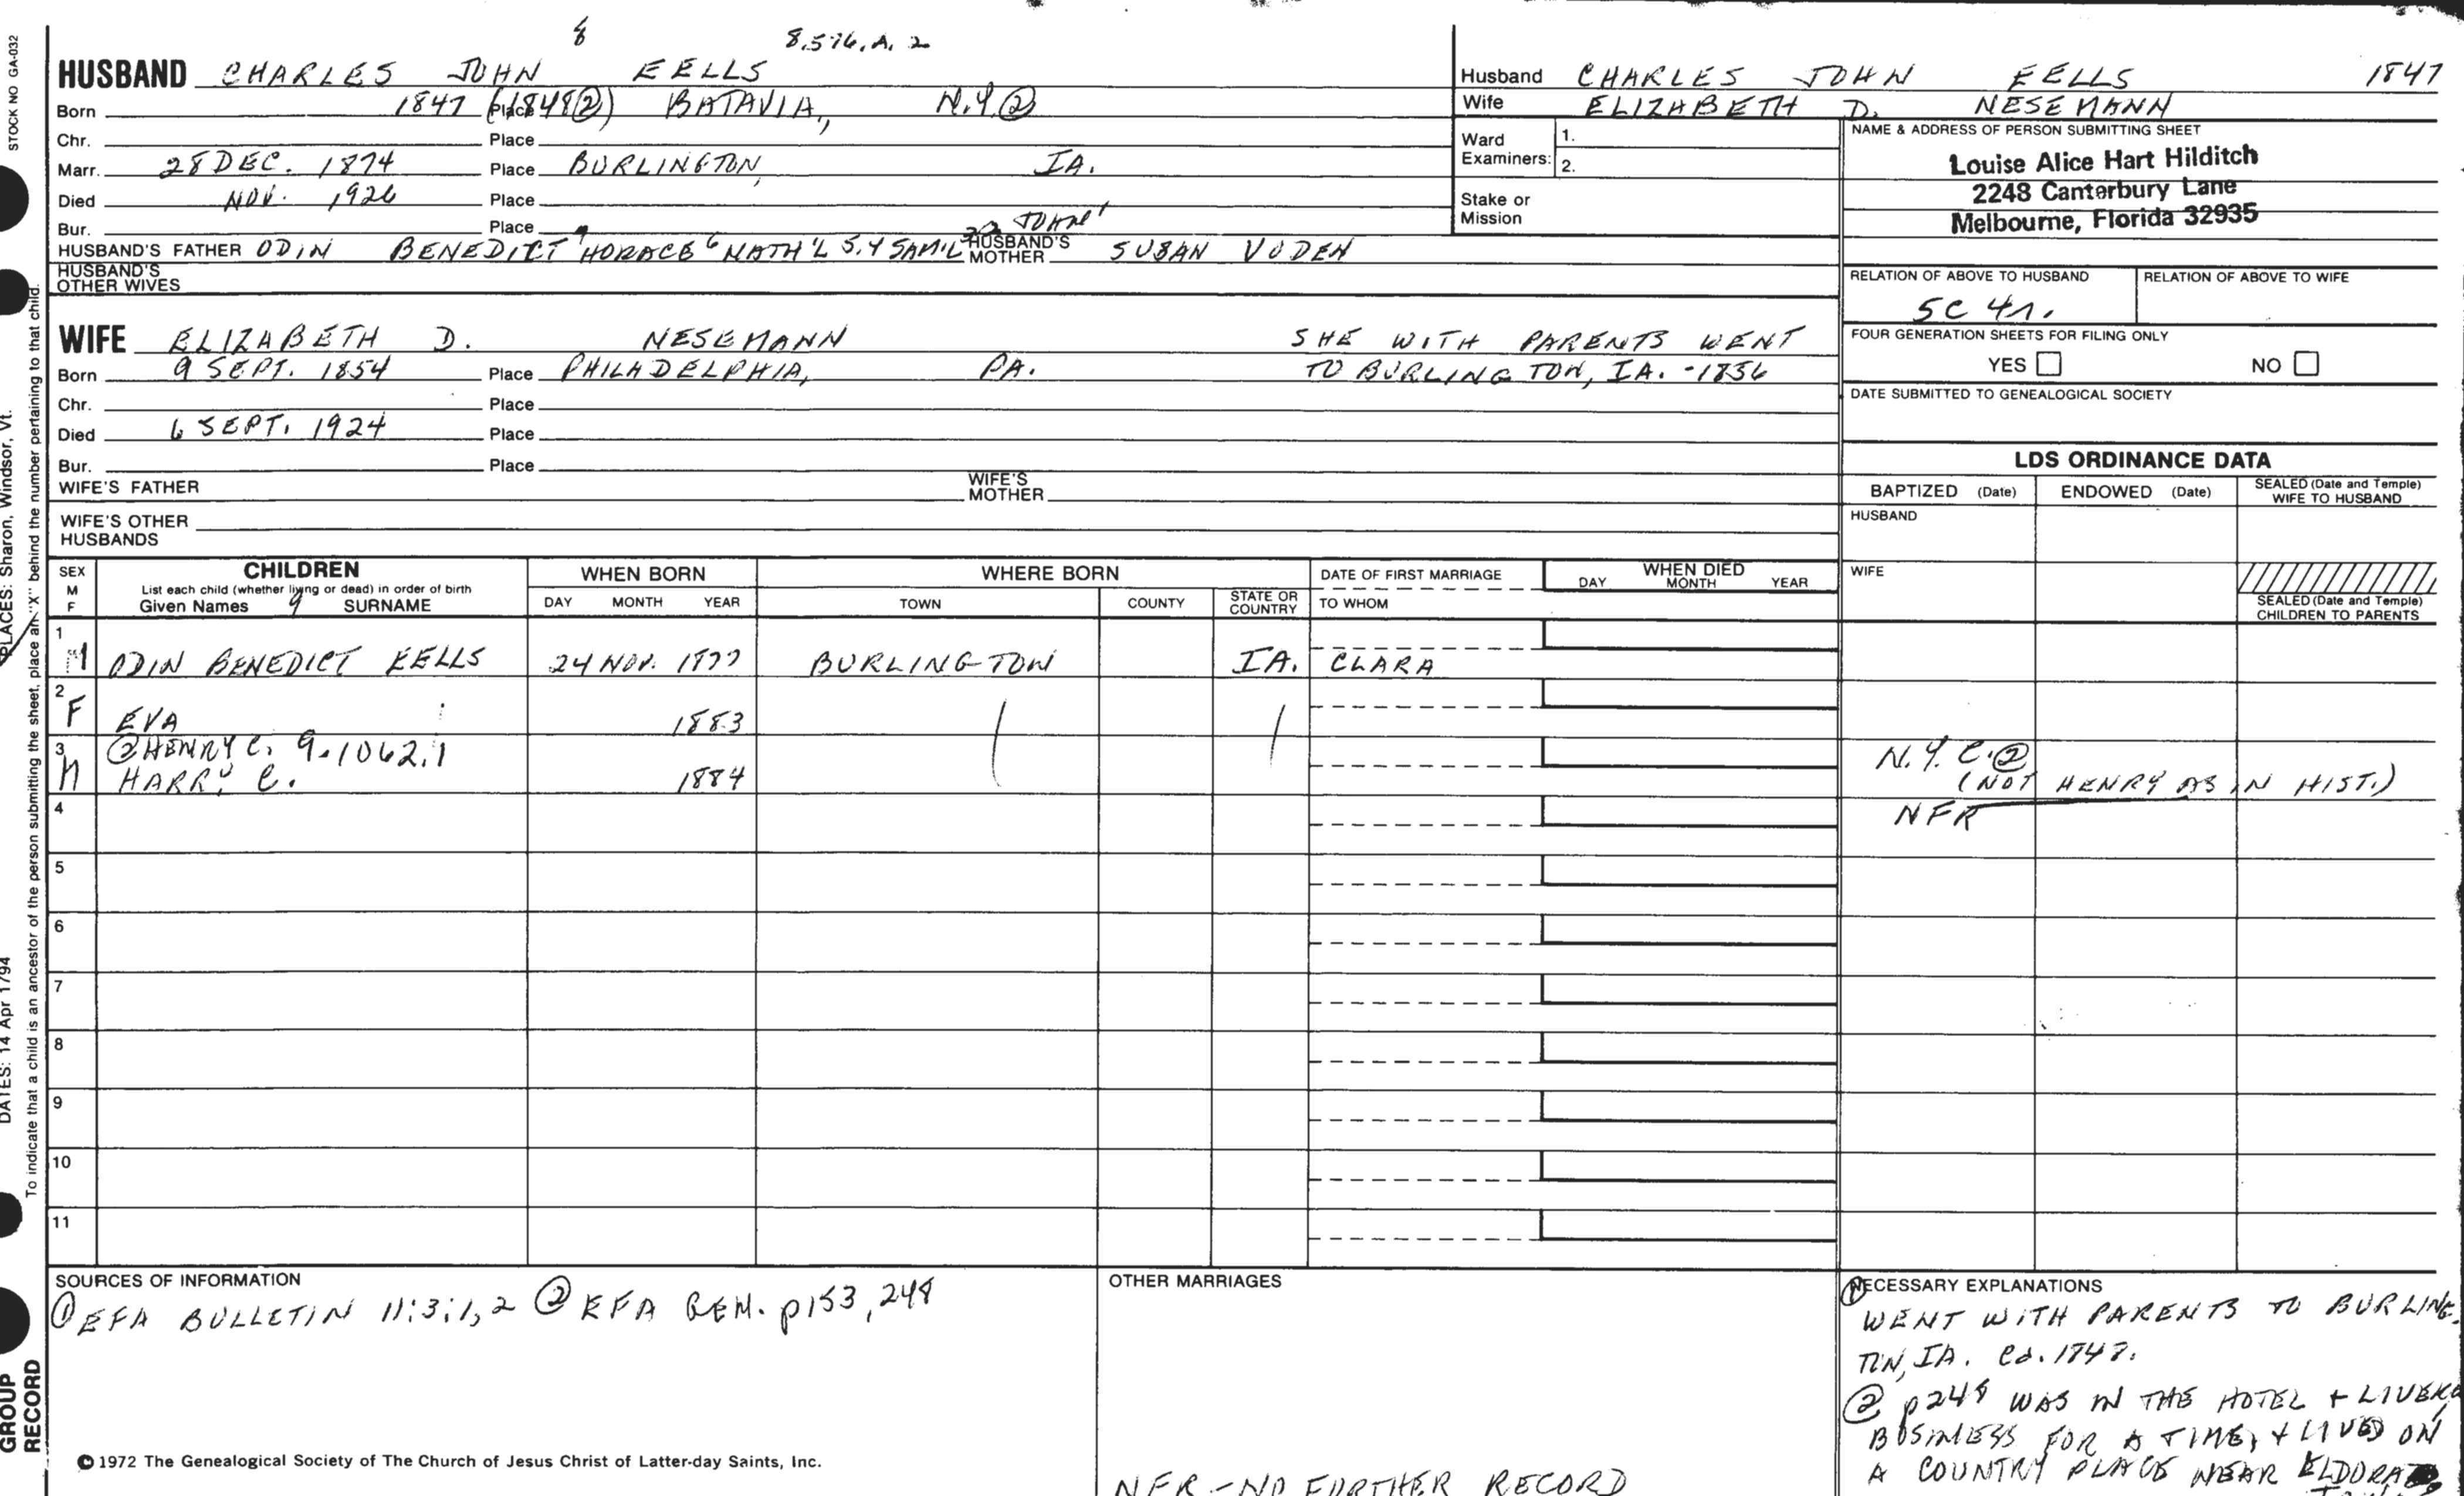 8 8.576.A.2
HUSBAND CHARLES JOHN EELLS
Born 1847 Place (1848②) BATAVIA, N.Y.②
Chr. Place
Marr. 28 DEC. 1874 Place BURLINGTON, IA.
Died NOV. 1926 Place
Bur. Place
HUSBAND'S FATHER ODIN BENEDICT 7 HORACE 6 NATH'L 5,4 SAM'L 3,2 JOHN 1 HUSBAND'S MOTHER SUSAN VODEN
HUSBAND'S OTHER WIVES
WIFE ELIZABETH D. NESEMANN SHE WITH PARENTS WENT
Born 9 SEPT. 1854 Place PHILADELPHIA, PA. TO BURLINGTON, IA. -1856
Chr. Place
Died 6 SEPT. 1924 Place
Bur. Place
WIFE'S FATHER WIFE'S MOTHER
WIFE'S OTHER HUSBANDS
Husband CHARLES JOHN EELLS 1847
Wife ELIZABETH D. NESEMANN
Ward Examiners: 1.
2.
Stake or Mission
NAME & ADDRESS OF PERSON SUBMITTING SHEET
Louise Alice Hart Hilditch
2248 Canterbury Lane
Melbourne, Florida 32935
RELATION OF ABOVE TO HUSBAND RELATION OF ABOVE TO WIFE
5C 4r.
FOUR GENERATION SHEETS FOR FILING ONLY
YES NO
DATE SUBMITTED TO GENEALOGICAL SOCIETY
LDS ORDINANCE DATA
BAPTIZED (Date) ENDOWED (Date) SEALED (Date and Temple) WIFE TO HUSBAND
HUSBAND
WIFE
SEALED (Date and Temple) CHILDREN TO PARENTS
SEX M F
CHILDREN
List each child (whether living or dead) in order of birth
Given Names 9 SURNAME
WHEN BORN
DAY MONTH YEAR
WHERE BORN
TOWN COUNTY STATE OR COUNTRY
DATE OF FIRST MARRIAGE
TO WHOM
WHEN DIED
DAY MONTH YEAR
1
M ODIN BENEDICT EELLS 24 NOV. 1877 BURLINGTON IA. CLARA
2
F EVA 1883
3 ②HENRY C. 9.1062.1 N.Y.C.②
M HARRY C. 1884 (NOT HENRY AS IN HIST.)
4 NFR
5
6
7
8
9
10
11
SOURCES OF INFORMATION
① EFA BULLETIN 11:3:1,2 ② EFA GEN. p153,248
OTHER MARRIAGES
NFR - NO FURTHER RECORD
NECESSARY EXPLANATIONS
① WENT WITH PARENTS TO BURLING-
TON, IA. ca. 1848.
② p248 WAS IN THE HOTEL + LIVERY
BUSINESS FOR A TIME, + LIVED ON
A COUNTRY PLACE NEAR ELDORA
© 1972 The Genealogical Society of The Church of Jesus Christ of Latter-day Saints, Inc.
STOCK NO GA-032
To indicate that a child is an ancestor of the person submitting the sheet, place an "X" behind the number pertaining to that child.
PLACES: Sharon, Windsor, Vt.
DATES: 14 Apr 1794
GROUP
RECORD